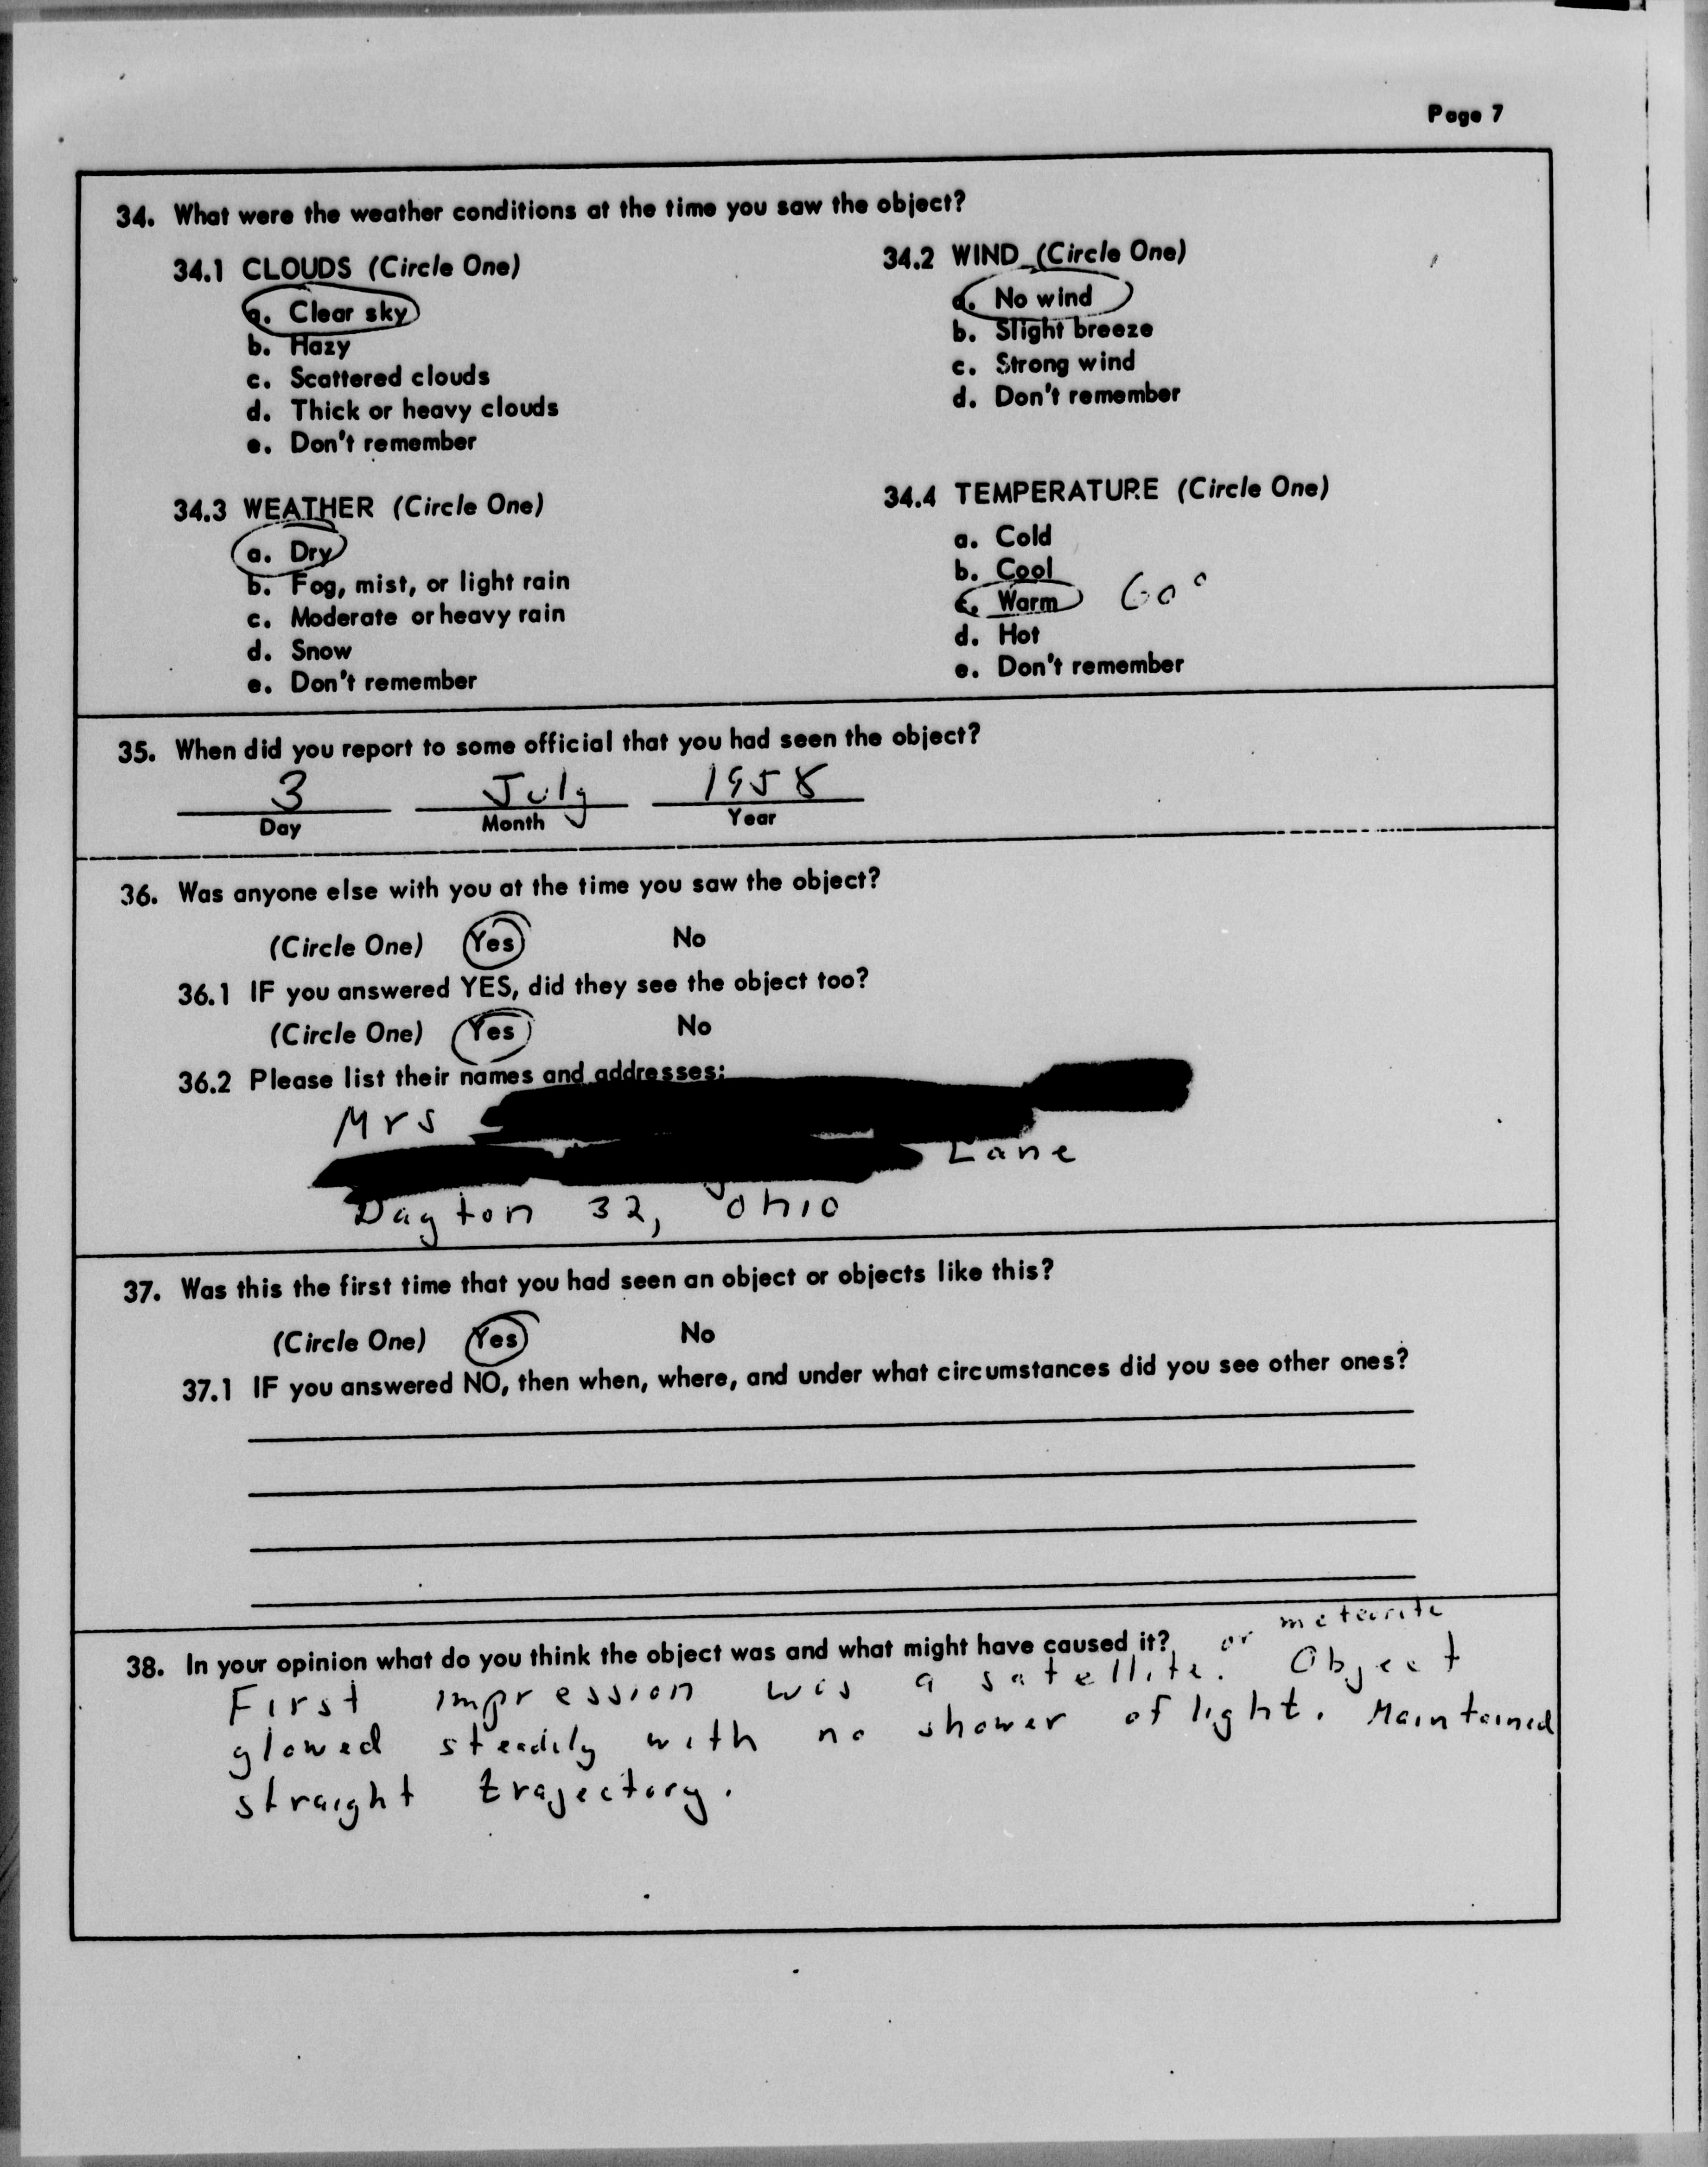 Page 7
34. What were the weather conditions at the time you saw the object?
34.1 CLOUDS (Circle One)
a. Clear sky
b. Hazy
c. Scattered clouds
d. Thick or heavy clouds
e. Don't remember
34.2 WIND (Circle One)
a. No wind
b. Slight breeze
c. Strong wind
d. Don't remember
34.3 WEATHER (Circle One)
a. Dry
b. Fog, mist, or light rain
c. Moderate or heavy rain
d. Snow
e. Don't remember
34.4 TEMPERATURE (Circle One)
a. Cold
b. Cool
c. Warm 60°
d. Hot
e. Don't remember
35. When did you report to some official that you had seen the object?
3 July 1958
Day Month Year
36. Was anyone else with you at the time you saw the object?
(Circle One) Yes No
36.1 IF you answered YES, did they see the object too?
(Circle One) Yes No
36.2 Please list their names and addresses:
Mrs
Lane
Dayton 32, Ohio
37. Was this the first time that you had seen an object or objects like this?
(Circle One) Yes No
37.1 IF you answered NO, then when, where, and under what circumstances did you see other ones?
38. In your opinion what do you think the object was and what might have caused it?
or meteorite
First impression was a satellite. Object
glowed steadily with no shower of light. Maintained
straight trajectory.